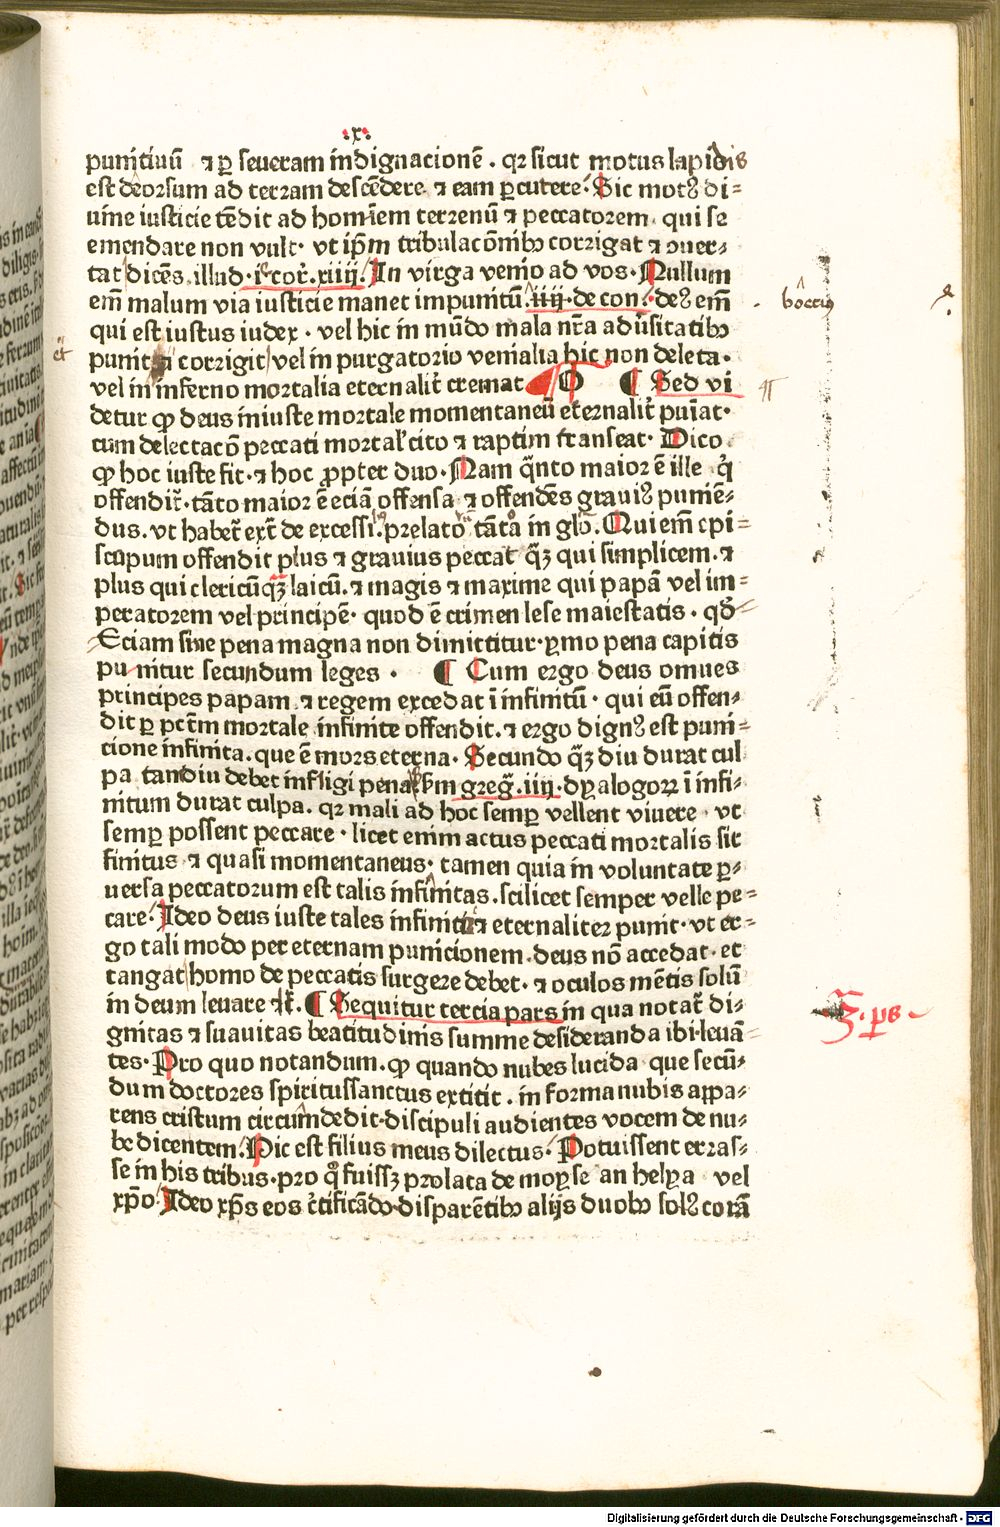 .x.
punitiuū ⁊ ꝑ seueram indignacionē . qꝛ sicut motus lapidis
est deorsum ad terram descēdere ⁊ eam ꝑcutere. Sic motꝰ di⸗
uine iusticie tēdit ad hominem terrenū ⁊ peccatorem. qui se
emendare non vult. vt ip̄m tribulacōnibꝫ corrigat ⁊ ɔuer⸗
tat dicēs illud. i. cor̄. xiiij. In virga venio ad vos. Nullum
em̄ malum via iusticie manet impunitū. iiij. de con. deꝰ em̄
boccius
qui est iustus iudex. vel hic in mūdo mala nr̄a aduersitatibꝫ
punit ⁊ corrigit vel in purgatorio venialia hic non deleta.
et
vel in inferno mortalia eternalit̄ cremat ¶ O ¶ Sed vi
detur ꝙ deus iniuste mortale momentaneū eternalit̄ puniat.
cum delectacō peccati mortal̄ cito ⁊ raptim transeat. Dico
ꝙ hoc iuste fit. ⁊ hoc ꝓpter duo. Nam q̄nto maior ē ille q̄
offendit̄. tāto maior ē eciā offensa ⁊ offendēs grauiꝰ puniē⸗
dus. vt habet̄ ext̄ de excessi. prelatoꝝ tāta in glo. Qui em̄ epi⸗
scopum offendit plus ⁊ grauius peccat q̄ꝫ qui simplicem. ⁊
plus qui clericū qꝫ laicū. ⁊ magis ⁊ maxime qui papā vel im⸗
peratorem vel principē. quod ē crimen lese maiestatis. qð
Eciam sine pena magna non dimittitur. ymo pena capitis
punitur secundum leges . ¶ Cum ergo deus omnes
principes papam ⁊ regem excedat ī infinitū. qui eū offen⸗
dit ꝑ pctm̄ mortale infinite offendit. ⁊ ergo dignꝰ est puni⸗
cione infinita. que ē mors eterna. Secundo q̄ꝫ diu durat cul
pa tandiu debet infligi pena. sm greg. iiij. dyalogoꝝ ī infi⸗
nitum durat culpa. qꝛ mali ad hoc semꝑ vellent viuere. vt
semꝑ possent peccare. licet enim actus peccati mortalis sit
finitus ⁊ quasi momentaneus. tamen quia in voluntate ꝑ⸗
uersa peccatorum est talis infinitas. scilicet semper velle pe⸗
care. Ideo deus iuste tales infinitū ⁊ eternaliter punit. vt er⸗
go tali modo per eternam punicionem. deus nō accedat. et
tangat homo de peccatis surgere debet. ⁊ oculos mētis solū
in deum leuare ⁊c̄. ¶ Sequitur tercia pars in qua notat̄ di⸗
3. ps
gnitas ⁊ suauitas beatitudinis summe desideranda ibi. leuā⸗
tes. Pro quo notandum. ꝙ quando nubes lucida que secū⸗
dum doctores spiritussanctus extitit. in forma nubis appa⸗
rens cristum circumdedit. discipuli audientes vocem de nu⸗
be dicentem. Hic est filius meus dilectus. Potuissent erras⸗
se in his tribus. pro qͦ fuissꝫ prolata de moyse an helya vel
xp̄o. Ideo xp̄s eos c̄tificādo. disparētibꝫ alijs duobꝫ solꝰ corā
Digitalisierung gefördert durch die Deutsche Forschungsgemeinschaft - DFG